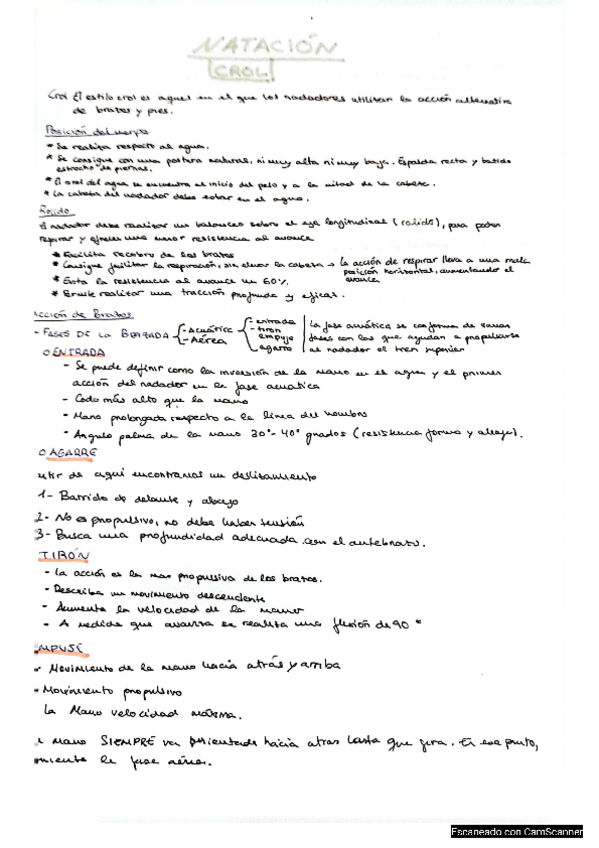 NATACIÓN
CROL
Crol El estilo crol es aquel en el que los nadadores utilizan la acción alternativa
de brazos y pies.
Posición del cuerpo
* Se realiza respecto al agua.
* Se consigue con una postura natural, ni muy alta ni muy baja. Espalda recta y batido
estrecho de piernas.
* El nivel del agua se encuentra al inicio del pelo y a la mitad de la cabeza.
* La cabeza del nadador debe estar en el agua.
Rolido
El nadador debe realizar un balanceo sobre el eje longitudinal (rolido), para poder
respirar y ofrecer una menor resistencia al avance
* Facilita recobro de los brazos
* Consigue facilitar la respiración, sin elevar la cabeza → la acción de respirar lleva a una mala
posición horizontal, aumentando el
avance
* Evita la resistencia al avance un 60%.
* Permite realizar una tracción profunda y eficaz.
Acción de Brazos
- FASES DE LA BRAZADA - Acuática - entrada
- Aérea - tiron
empuje
agarre
La fase acuática se conforma de varias
fases con las que ayudan a propulsarse
al nadador el tren superior
O ENTRADA
- Se puede definir como la inversión de la mano en el agua y el primer
acción del nadador en la fase acuatica
- Codo más alto que la mano
- Mano prolongada respecto a la línea del hombro
- Angulo palma de la mano 30°- 40° grados (resistencia forma y oleaje).
O AGARRE
rtir de aqui encontramos un deslizamiento
1- Barrido de delante y abajo
2- No es propulsivo, no debe haber tensión
3- Busca una profundidad adecuada con el antebrazo.
TIRÓN
- La acción es la mas propulsiva de los brazos.
- Describe un movimiento descendente
- Aumenta la velocidad de la mano
- A medida que avanza se realiza una flexión de 90°
MPUJE
* Movimiento de la mano hacia atrás y arriba
* Movimiento propulsivo
La Mano velocidad máxima.
mano SIEMPRE va orientada hacia atras hasta que gira. En ese punto,
omienza la fase aérea.
Escaneado con CamScanner